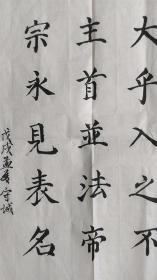 大乎入之不
主首並法帝
宗永見表名
戊戌孟春守城